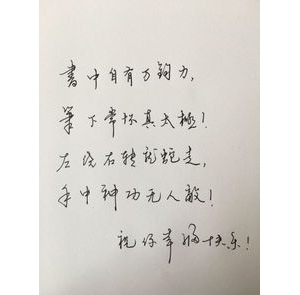 書中自有万钧力，
筆下常怀真太極！
左绕右转龍蛇走，
手中神功无人敵！
祝你幸福快乐！